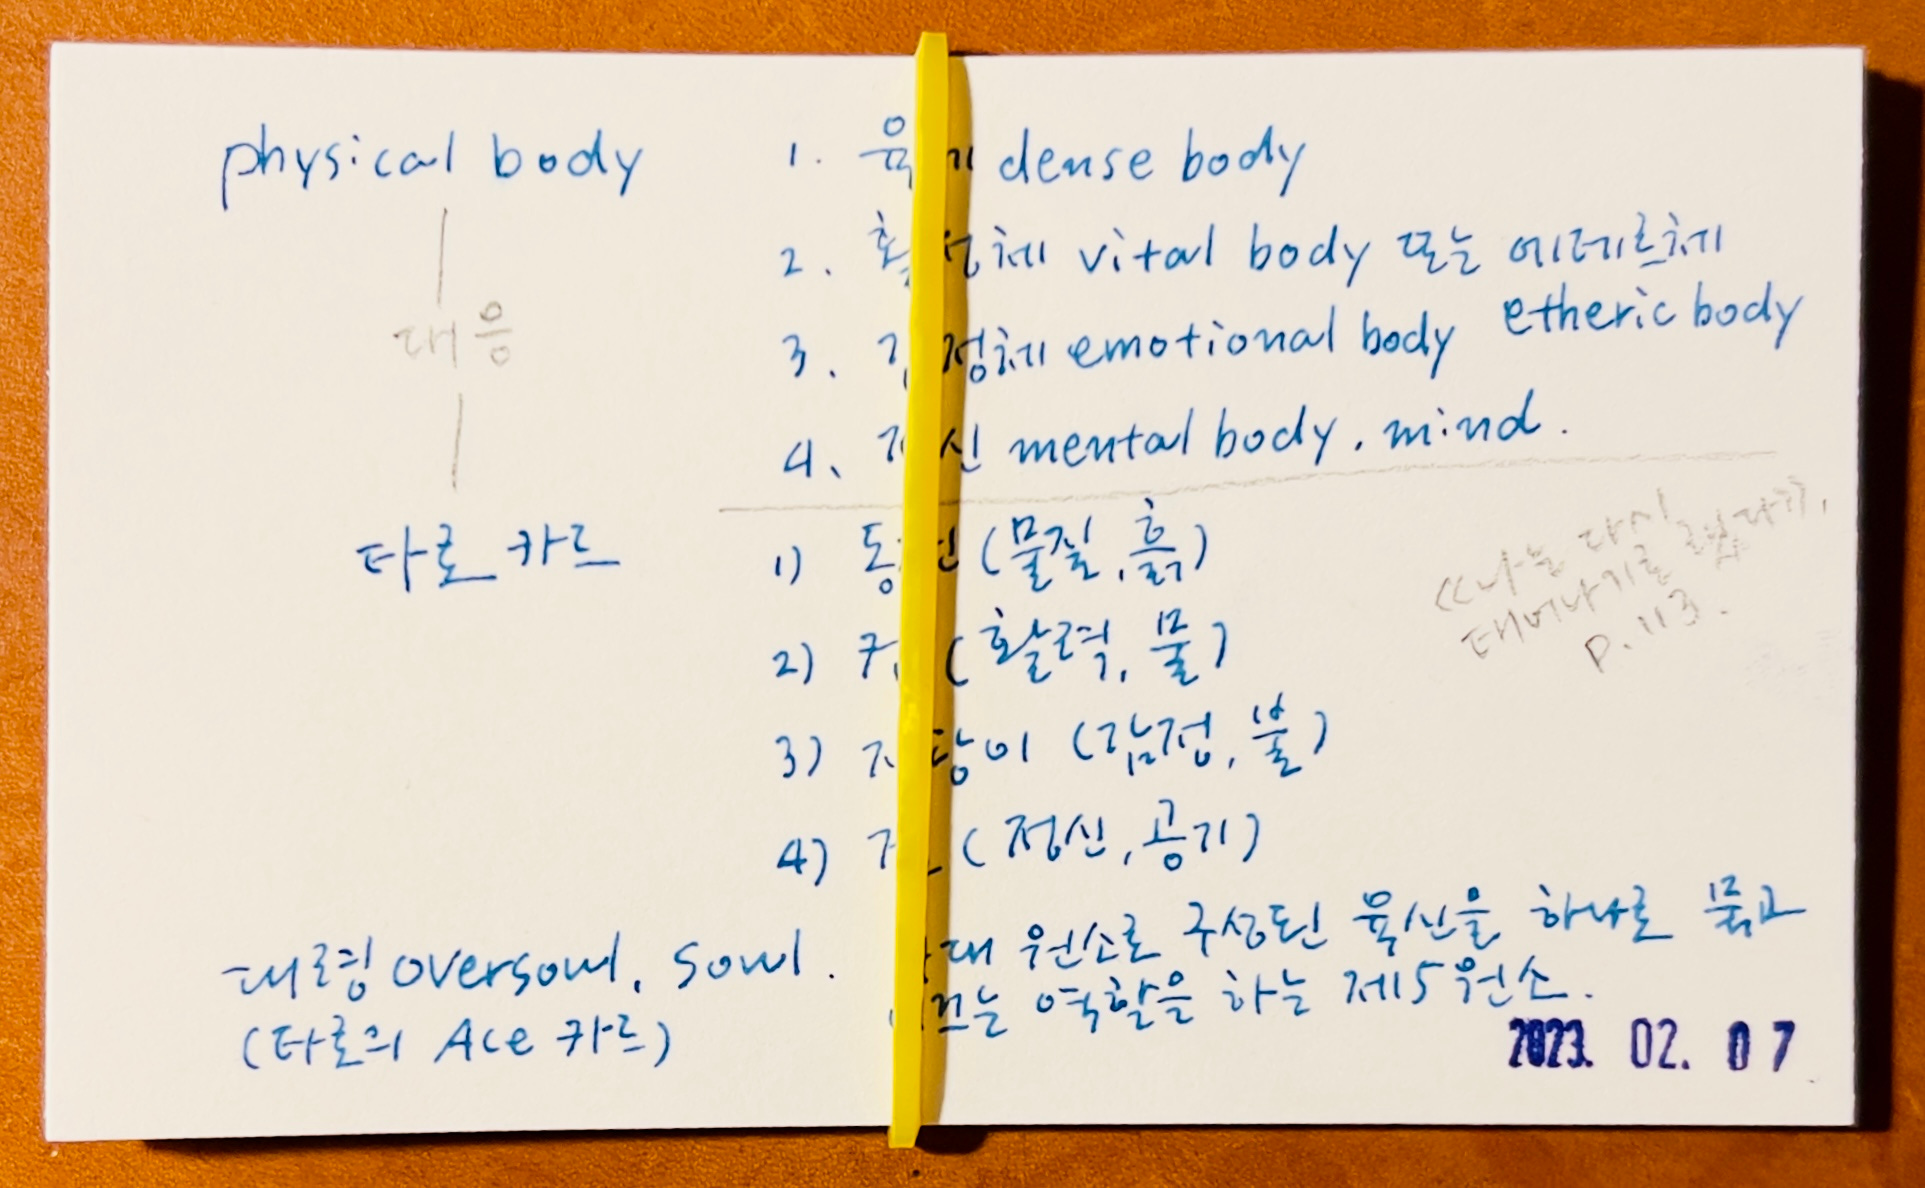 physical body
대응
타로 카드
1. dense body
2. vital body 또는 에테르체
etheric body
3. emotional body
4. mental body. mind.
1) (물질, 흙)
2) (활력, 물)
3) (감정, 불)
4) (정신, 공기)
《나는 다시
태어나기로 했다》,
p.113.
대령 oversoul, soul. 원소로 구성된 육신을 하나로 묶고
(타로의 Ace 카드) 역할을 하는 제5원소.
2023. 02. 07